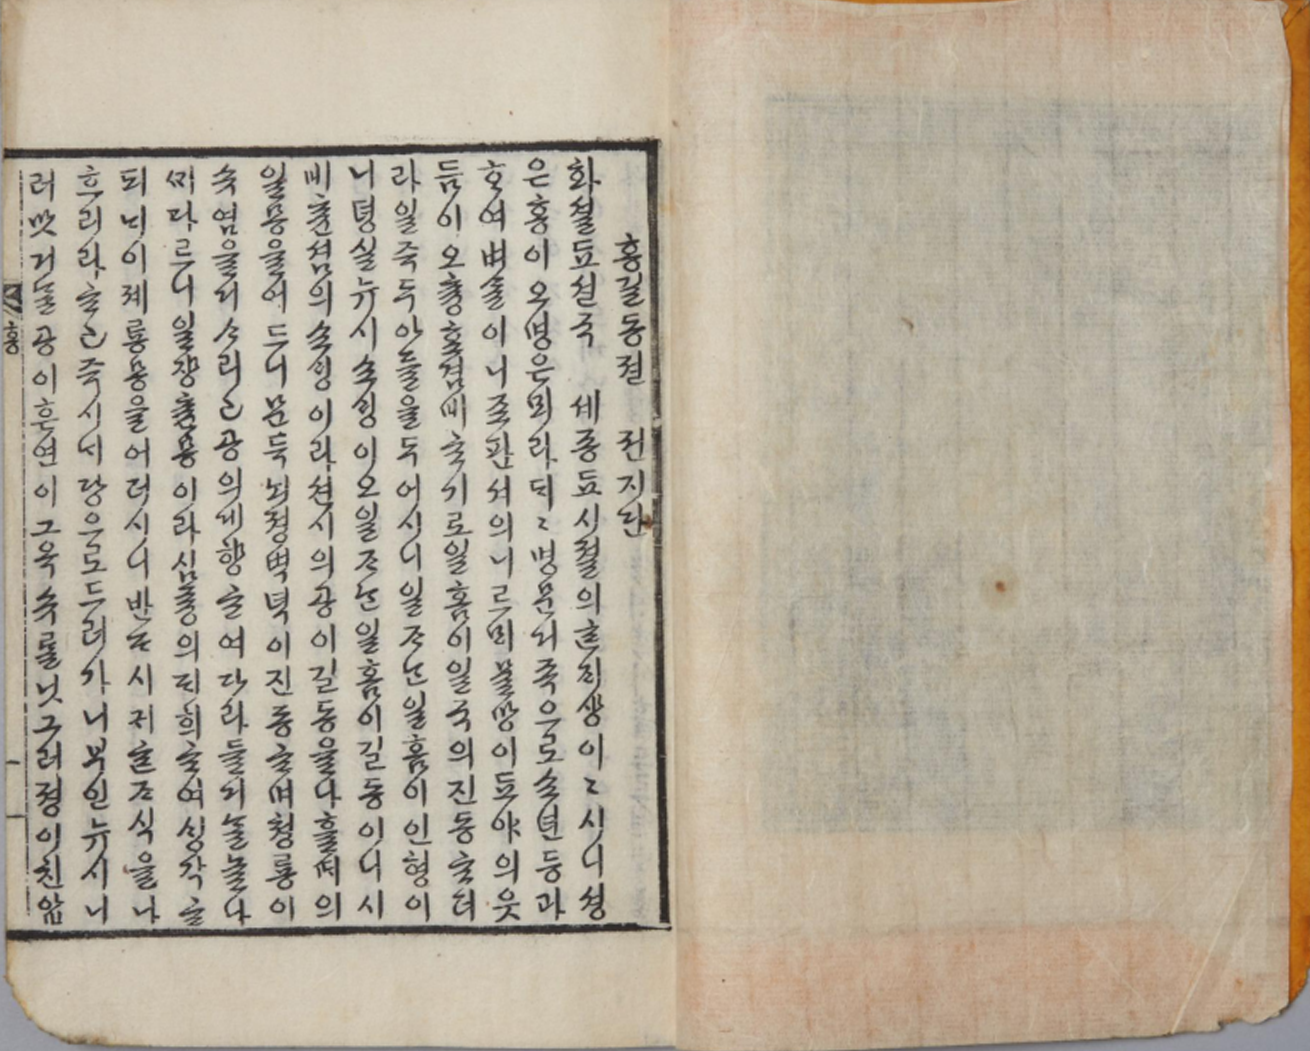 홍길동젼 권지단
화셜 됴션국 셰종됴 시졀의 ᄒᆞᆫ ᄌᆡ상이 〻시니 셩
은 홍이오 명은 뫼라 ᄃᆡ〻 명문거족으로 소년등과
ᄒᆞ여 벼슬이 니조판셔의 니르ᄆᆡ 물망이 됴야의 읏
듬이오 츙효겸비ᄒᆞ기로 일홈이 일국의 진동ᄒᆞ더
라 일즉 두 아들을 두어시니 일ᄌᆞᄂᆞᆫ 일홈이 인형이
니 뎡실 뉴시 소ᄉᆡᆼ이오 일ᄌᆞᄂᆞᆫ 일홈이 길동이니 시
비 츈셤의 소ᄉᆡᆼ이라 션시의 공이 길동을 나흘 ᄯᅢ의
일몽을 어드니 문득 뇌졍벽녁이 진동ᄒᆞ며 쳥룡이
슈염을 거ᄉᆞ리고 공의게 향ᄒᆞ여 다라들거ᄂᆞᆯ 놀나
ᄭᆡ다르니 일쟝츈몽이라 심즁의 ᄃᆡ희ᄒᆞ여 ᄉᆡᆼ각ᄒᆞ
되 ᄂᆡ 이졔 룡몽을 어더시니 반ᄃᆞ시 귀ᄒᆞᆫ ᄌᆞ식을 나
흐리라 ᄒᆞ고 즉시 ᄂᆡ당으로 드러가니 부인 뉴시 니
러 맛거ᄂᆞᆯ 공이 흔연이 그 옥슈를 닛그러 졍이 친압
홍